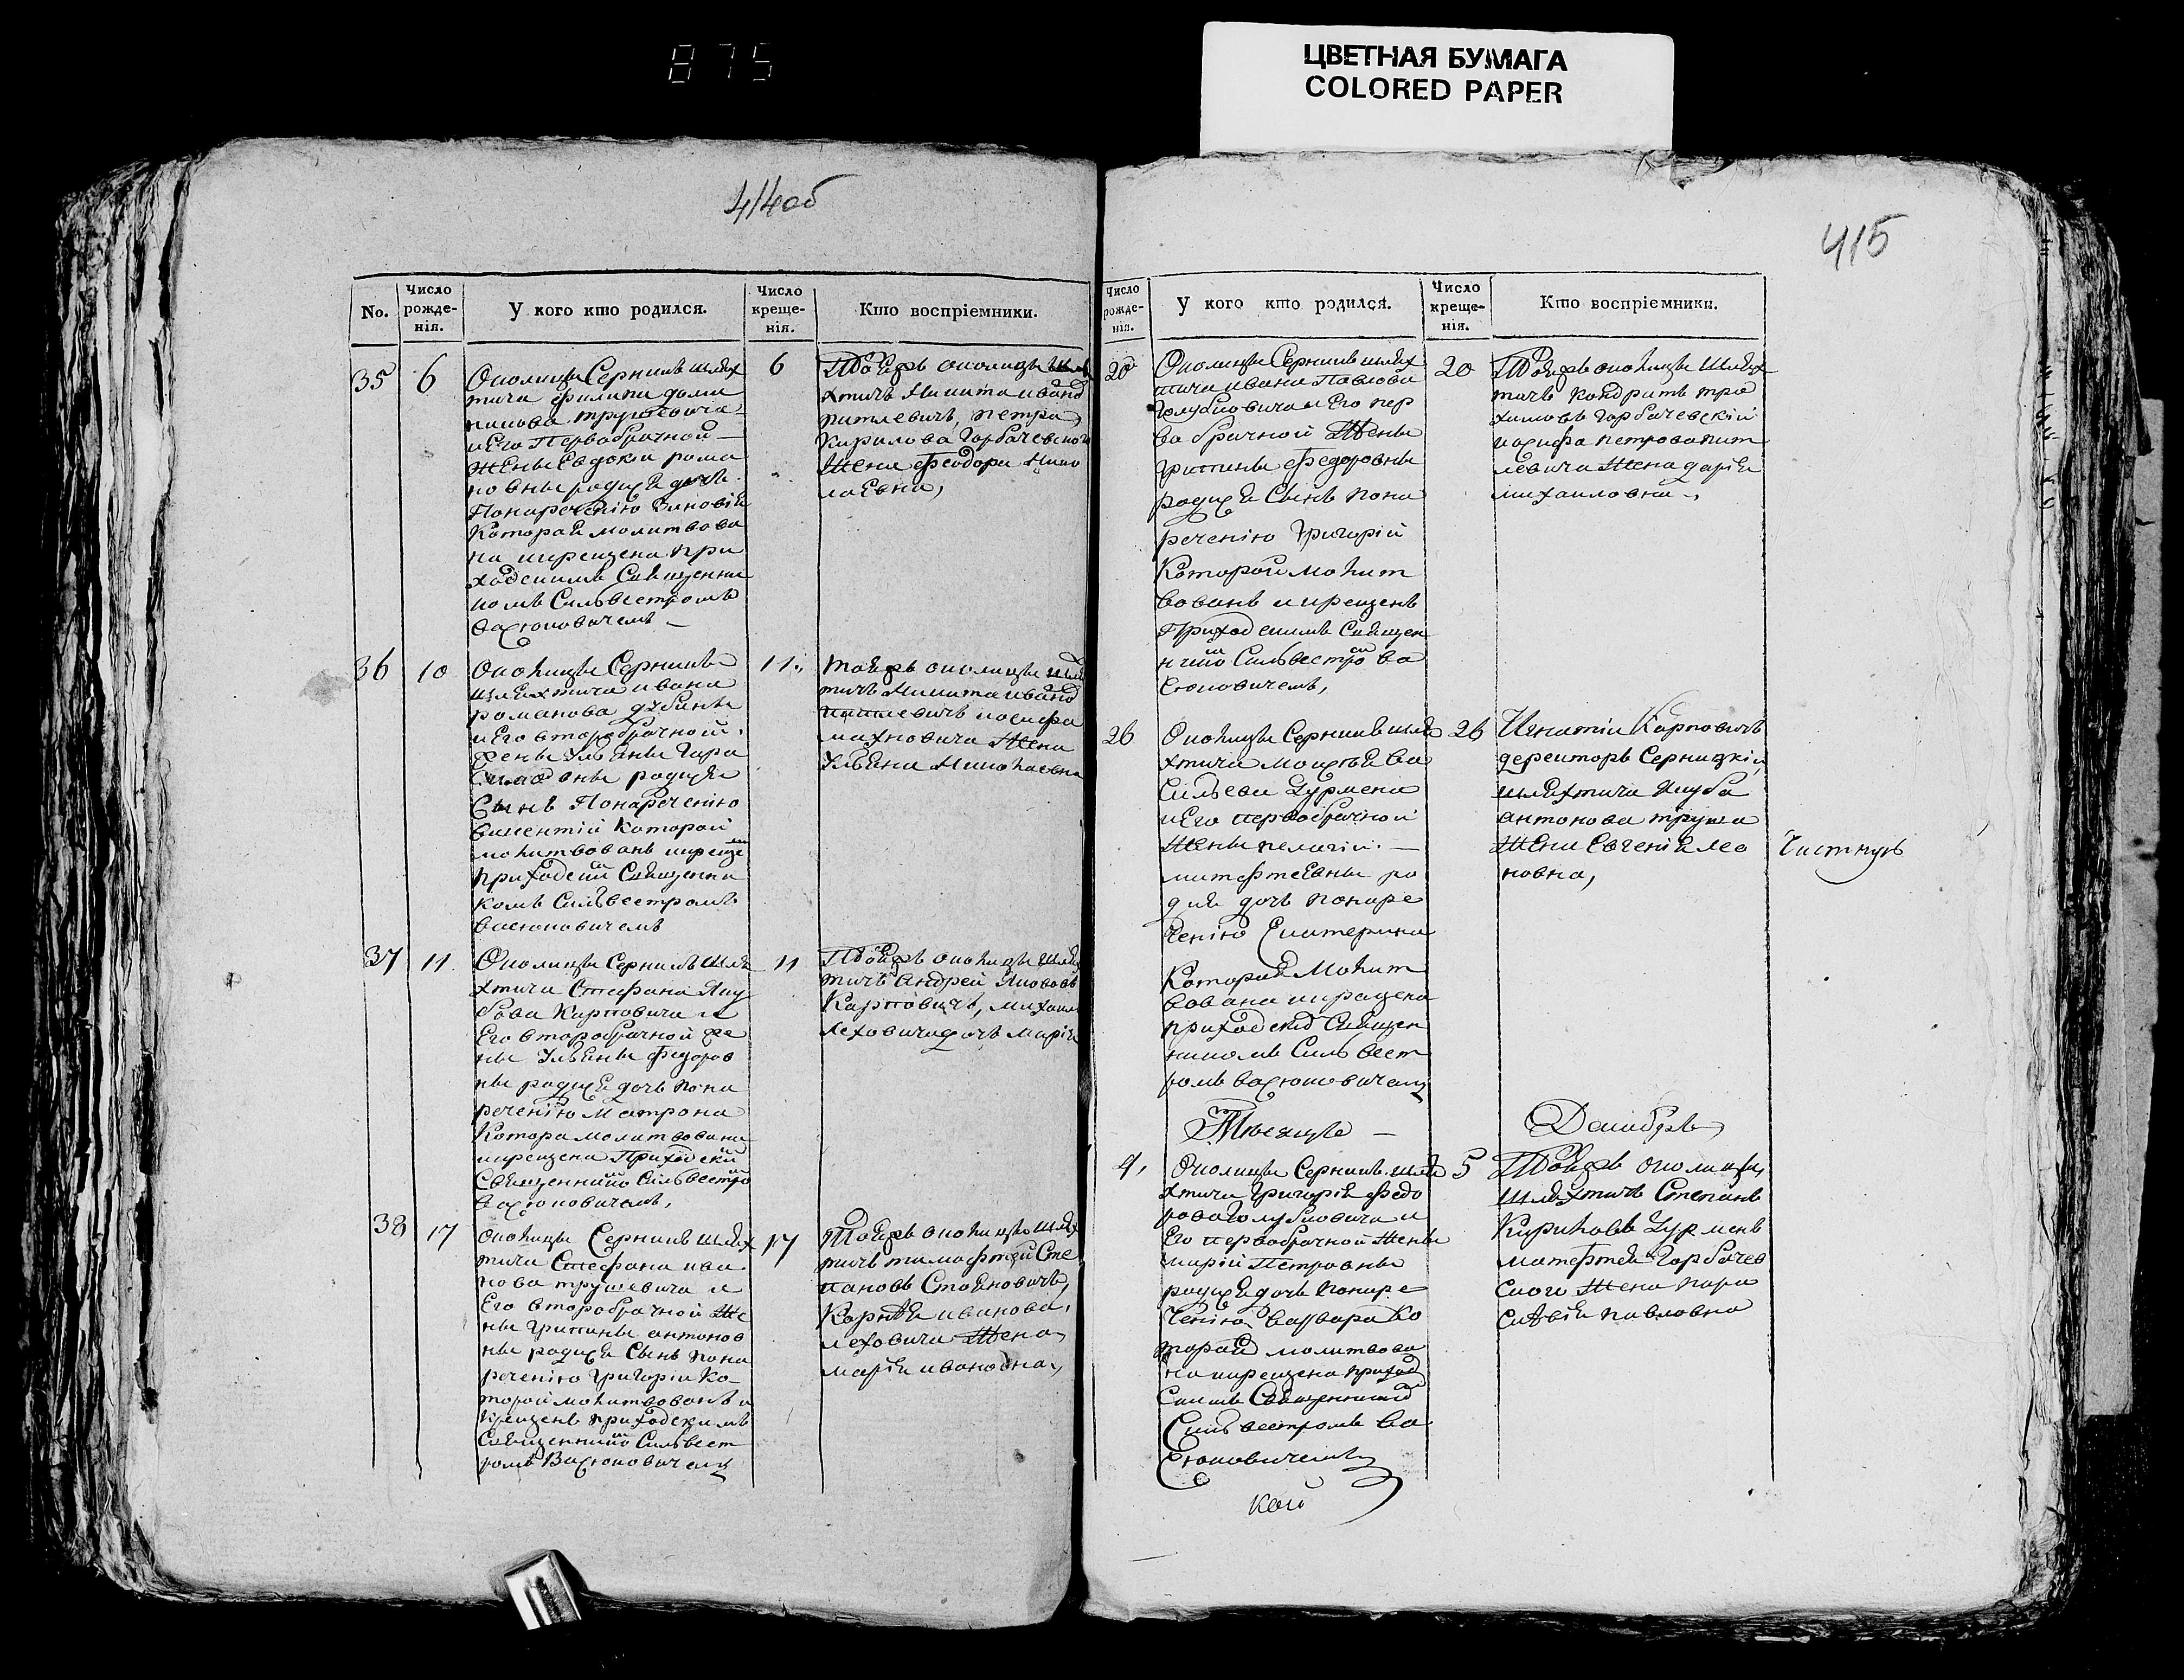 875
ЦВЕТНАЯ БУМАГА
COLORED PAPER
414об
No.
Число рожде-нія.
У кого кто родился.
Число креще-нія.
Кто воспріемники.
35
6
Околицы Серникъ шлях
тича филипа
и Его Первобрачной
жены Евдокіи рома
новны родися дочь
Понареченію Зиновія
Которая молитвова
на икрещена При
ходскимъ Священни
комъ Сильвестромъ
Васюковичемъ
6
Тояжъ околицы шля
хтичъ Никита иванов
питлевичъ, петра
Кирилова Горбачевского
Жена феодора Нико
лаевна,
36
10
Околицы Серникъ
шляхтича ивана
романова
и Его второбрачной
жены Ульяны
родися
Сынъ Понареченію
викентій Которой
молитвованъ икреще
приходским Священни
комъ Сильвестромъ
васюковичемъ
11
тояжъ околицы шля
тичъ Никита иванов
питлевичъ иосифа
махновича Жена
Ульяна Николаевна
37
11
Околицы Серникъ шля
хтича Стефана Яку
бова Карповича и
Его второбрачной же
ны Ульяны федоров
ны родися дочь пона
реченію Матрона
Котора молитвована
икрещена Приходским
Священником Сильвестром
васюковичемъ,
11
Тояжъ околицы шлях
тичъ Андрей Яковов
Карповичъ, михаила
леховича дочь марія
38
17
околицы Серникъ шлях
тича Стефана ива
нова трушевича и
Его второбрачной Же
ны Грипины антонов
ны родися Сынъ пона
реченію Григорій Ко
торой молитвованъ и
крещенъ приходскимъ
Священником Сильвест
ромъ Васюковичемъ
17
Тояжъ околицы шлях
тичъ тимофтей Сте
пановъ Стояновичъ,
Корнея иванова,
леховича Жена
марія ивановна,
415
Число рожде-нія.
У кого кто родился.
Число креще-нія.
Кто воспріемники.
20
Околицы Серникъ шлях
тича ивана Павлова
Голубовича и Его пер
вобрачной Жены
Грипины федоровны
родися Сынъ пона
реченію Григорій
Которой молит
вованъ и крещенъ
Приходскимъ Священ
ником Сильвестром Ва
сюковичемъ,
20
Тояжъ околицы шлях
тичъ Кондратъ тро
химовъ Горбачевскій
иосифа петрова пит
левича Жена дарія
михайловна,
26
Околицы Серникъ шля
хтича Моисея Ва
сильева Курмена
и Его первобрачной
Жены пелагіи
матфтеевны ро
дися дочь понаре
ченію Екатерина
Которая Молит
вована икрещена
приходским Священ
никомъ Сильвест
ромъ васюковичемъ
26
Игнатій Карповичъ
деректоръ Серницкій,
шляхтича Якуба
антонова
Жена Евгенія лео
новна,
Мѣсяцъ
Декабрь
4,
Околицы Серникъ шля
хтича Григорія федо
рова Голубовича и
Его первобрачной Жены
маріи Петровны
родися дочь Понаре
ченію Варвара Ко
торая молитвова
на икрещена приход
скимъ Священником
Сильвестромъ Ва
сюковичемъ
5
Тояжъ околицы,
шляхтичъ Степанъ
Кириловъ Курменъ
матфтея Горбачев
скаго Жена пара
скевія павловна